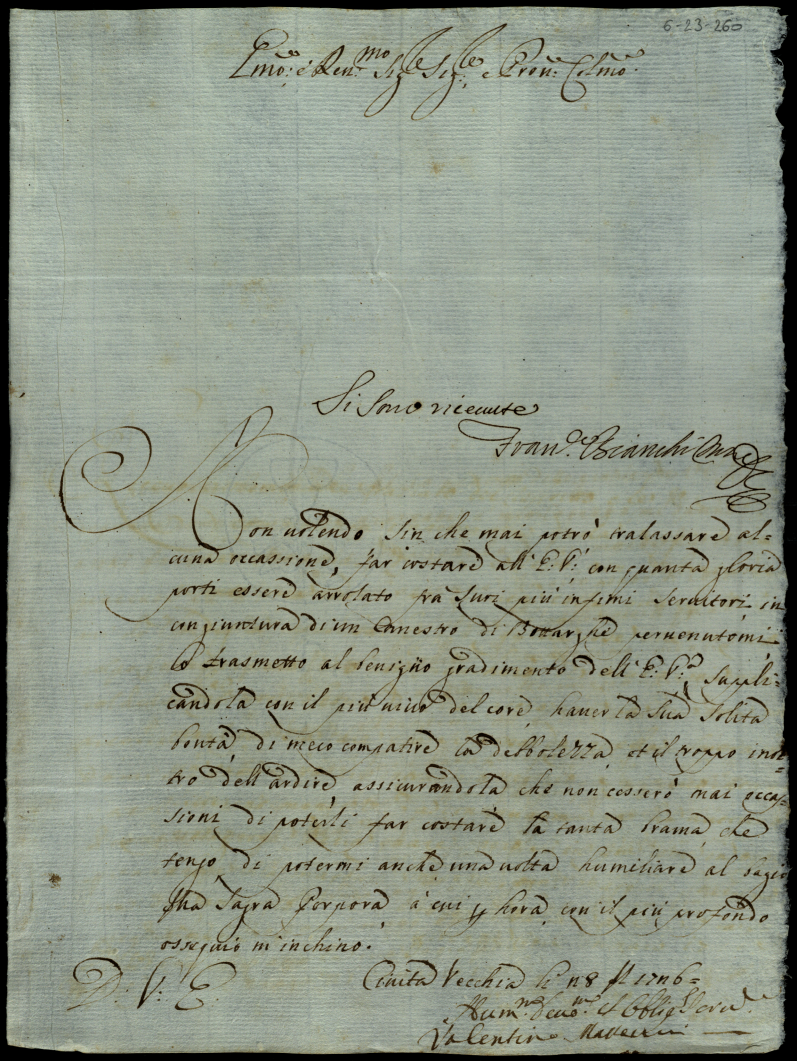 6-23-260
Emo: e Ren.mo Sig.re Sig.re e Pron: Colmo
Si sono riceuute
Fran.co Bianchi
Non uolendo sin che mai potrò tralassare al=
cuna occassione, far costare all' E: V: con quanta gloria
porti essere arrolato fra suoi più infimi seruitori in
congiuntura di un Canestro di Bottarghe peruenutomi
lo trasmetto al benigno gradimento dell' E: V.a, supli=
candola con il più uiuo del core hauer la sua solita
bontà di meco compatire la debbolezza, et il troppo inol=
tro dell' ardire, assicurandola che non cesserò mai occas=
sioni di poterli far costare la tanta brama che
tengo, di potermi anche una uolta humiliare al bagio
Sua Sagra Porpora à cui p hora con il più profondo
ossequio m' inchino.
D. V. E. Ciuita Vecchia li
Hum.mo Deuo.mo et Obblig. Seru.e
Valentino